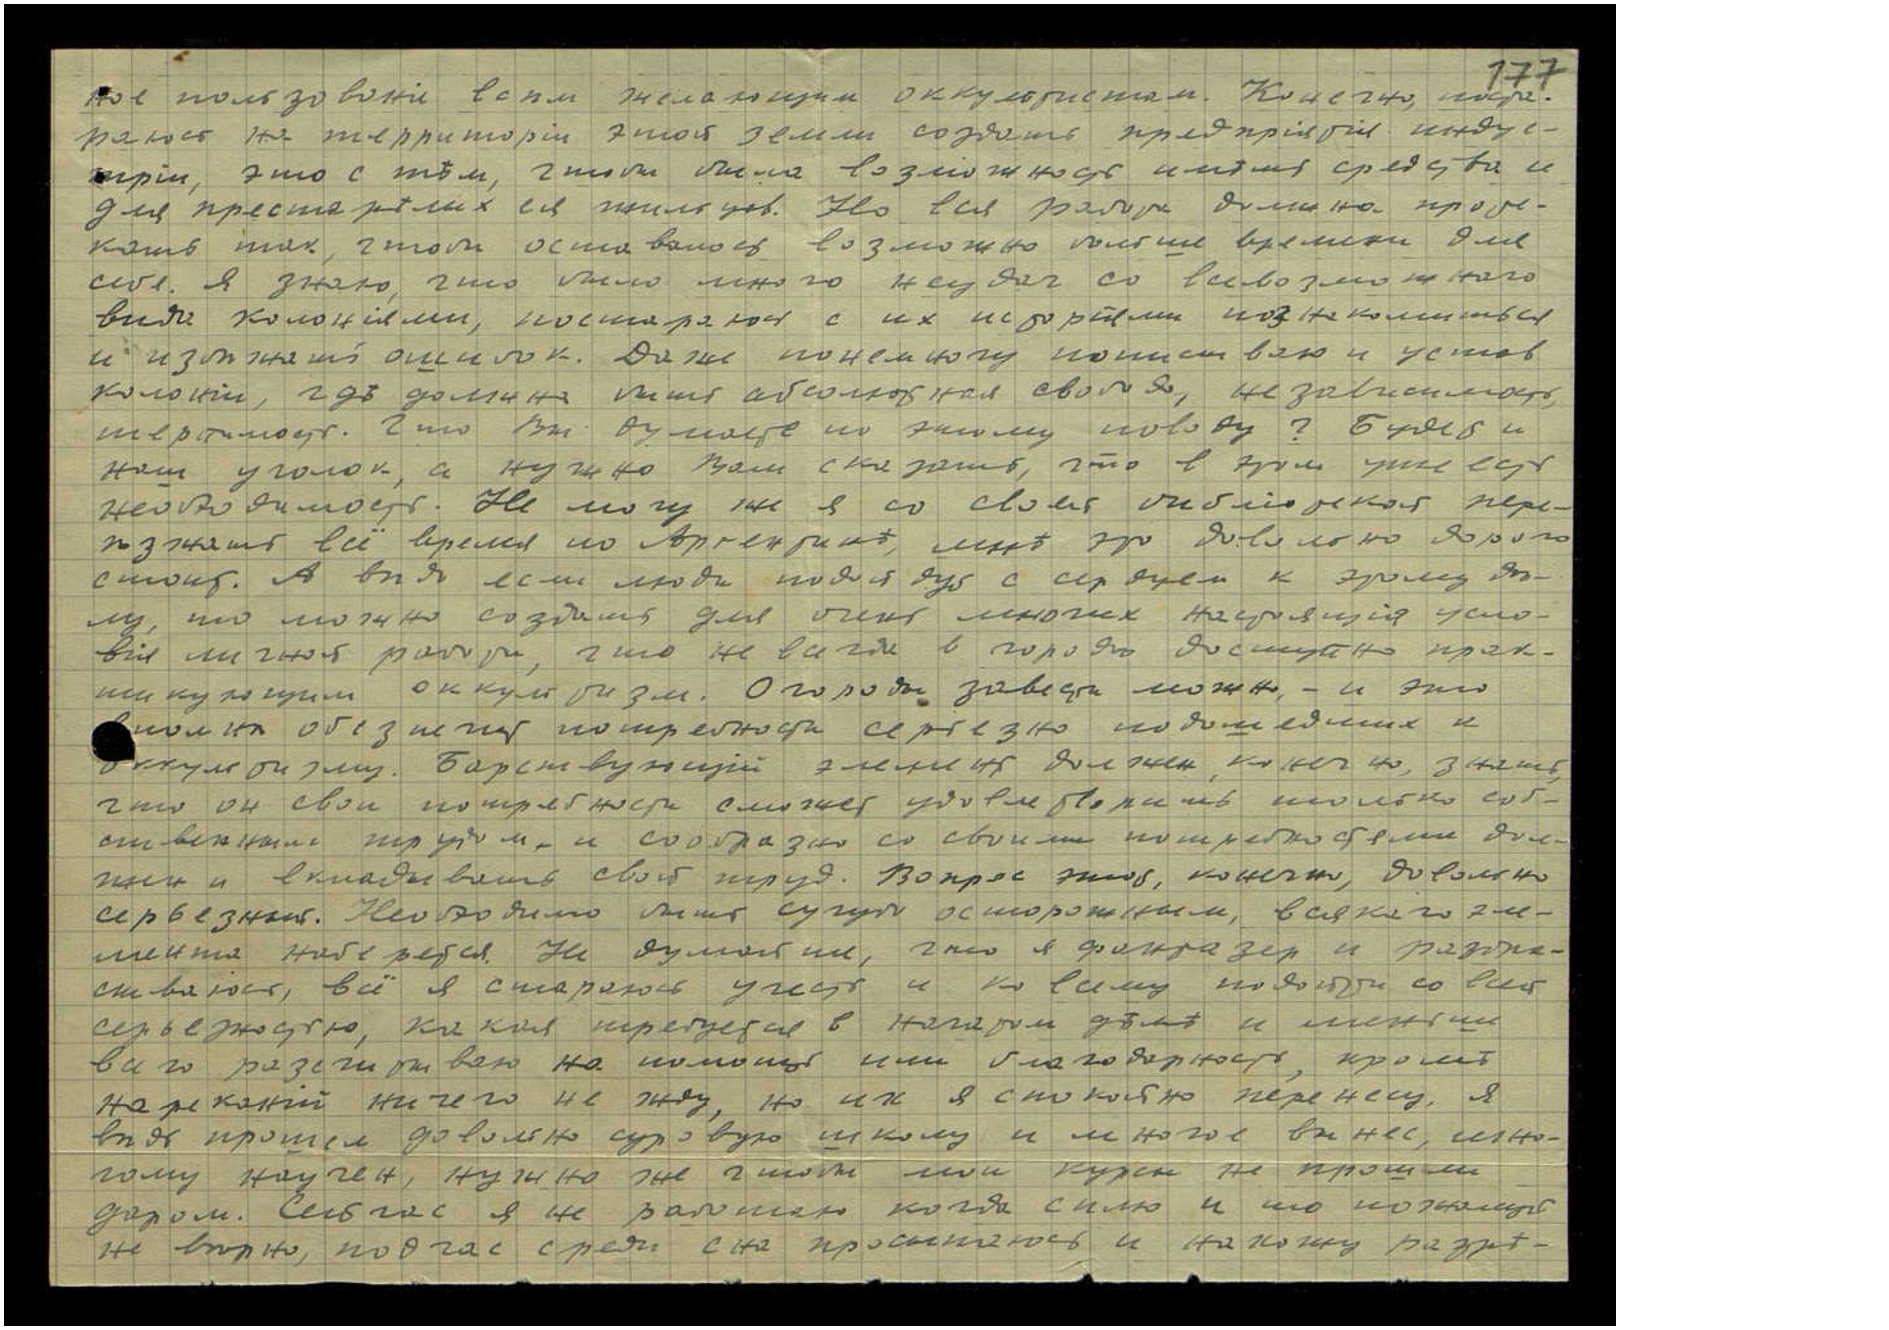 177
ное пользованіе всѣм желающим оккультистам. Конечно, поста-
раюсь на территоріи этой земли создать предпріятія индус-
тріи, это с тѣм, чтобы была возможность имѣть средства и
для престарѣлых ея жильцов. Но вся работа должна проте-
кать так, чтобы оставалось возможно больше времени для
себя. Я знаю, что было много неудач со всевозможнаго
вида колоніями, постараюсь с их исторіями познакомиться
и избѣжать ошибок. Даже понемногу пописываю и устав
колоніи, гдѣ должна быть абсолютная свобода, независимость,
терпимость. Что Вы думаете по этому поводу? Будет и
наш уголок, а нужно Вам сказать, что в этом уже есть
необходимость. Не могу же я со своей библіотекой пере-
ѣзжать всё время по Аргентинѣ, мнѣ это довольно дорого
стоит. А вѣдь если люди подойдут с сердцем к этому дѣ-
лу, то можно создать для очень многих настоящія усло-
вія личной работы, что не всегда в городѣ доступно прак-
тикующим оккультизм. Огороды завести можно, - и это
вполнѣ обезпечит потребности серьезно подошедших к
оккультизму. Барствующій элемент должен, конечно, знать,
что он свои потребности сможет удовлетворить только соб-
ственным трудом, и сообразно со своими потребностями дол-
жен и вкладывать свой труд. Вопрос этот, конечно, довольно
серьезный. Необходимо быть сугубо осторожным, всякаго эле-
мента наберется. Не думайте, что я фантазер и разбра-
сываюсь, всё я стараюсь учесть и ко всему подойти со всей
серьезностью, какая требуется в начатом дѣлѣ и меньше
всего разсчитываю на помощь или благодарность, кромѣ
нареканій ничего не жду, но их я спокойно перенесу. Я
вѣдь прошел довольно суровую школу и многое вынес, мно-
гому научен, нужно же чтобы мои курсы не прошли
даром. Сейчас я не работаю когда сплю и то пожалуй
не вѣрно, подчас среди сна просыпаюсь и нахожу разрѣ-